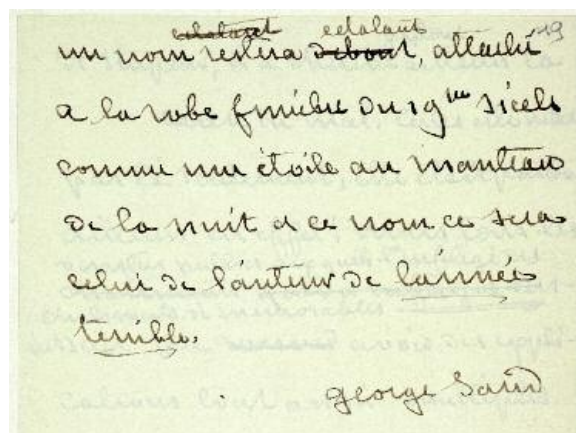 eclatant eclatant 19
un nom restera debout, attaché
a la robe funèbre du 19me siècle
comme une étoile au manteau
de la nuit et ce nom ce sera
celui de l'auteur de l'année
terrible.
George Sand